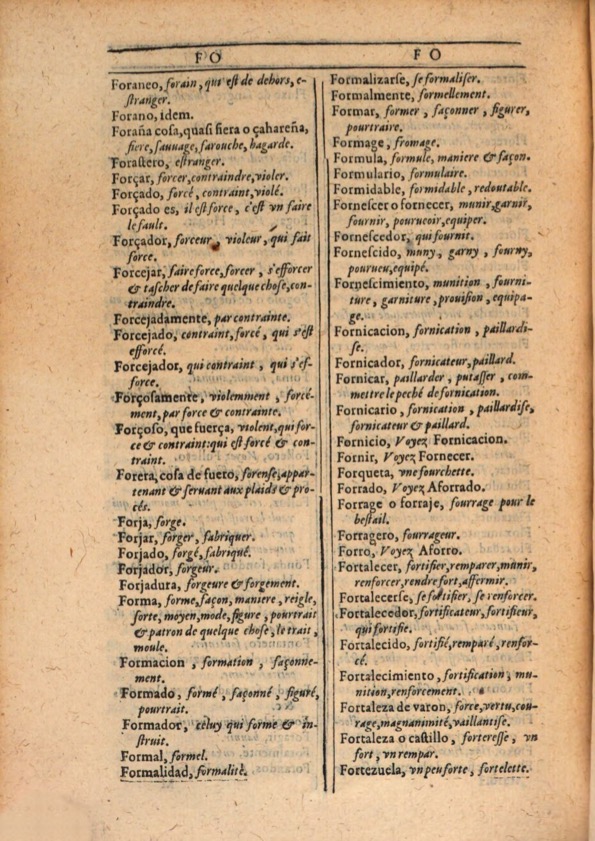 FO
Foraneo, forain, qui est de dehors, e-
stranger.
Forano, idem.
Foraña cosa, quasi fiera o çahareña,
fiere, sauuage, farouche, hagarde.
Forastero, estranger.
Forçar, forcer, contraindre, violer.
Forçado, forcé, contraint, violé.
Forçado es, il est force, c'est vn faire
le fault.
Forçador, forceur, violeur, qui fait
force.
Forcejar, faire force, forcer, s'efforcer
& tascher de faire quelque chose, con-
traindre.
Forcejadamente, par contrainte.
Forcejado, contraint, forcé, qui s'est
efforcé.
Forcejador, qui contraint, qui s'ef-
force.
Forçosamente, violemment, forcé-
ment, par force & contrainte.
Forçoso, que fuerça, violent, qui for-
ce & contraint: qui est forcé & con-
traint.
Forera, cosa de fuero, forense, appar-
tenant & seruant aux plaids & pro-
cés.
Forja, forge.
Forjar, forger, fabriquer.
Forjado, forgé, fabriqué.
Forjador, forgeur.
Forjadura, forgeure & forgement.
Forma, forme, façon, maniere, reigle,
sorte, moyen, mode, figure, pourtrait
& patron de quelque chose, le trait,
moule.
Formacion, formation, façonne-
ment.
Formado, formé, façonné, figuré,
pourtrait.
Formador, celuy qui forme & in-
struit.
Formal, formel.
Formalidad, formalité.
FO
Formalizarse, se formaliser.
Formalmente, formellement.
Formar, former, façonner, figurer,
pourtraire.
Formage, fromage.
Formula, formule, maniere & façon.
Formulario, formulaire.
Formidable, formidable, redoutable.
Fornescer o fornecer, munir, garnir,
fournir, pouruoir, equiper.
Fornescedor, qui fournit.
Fornescido, muny, garny, fourny,
pourueu, equipé.
Fornescimiento, munition, fourni-
ture, garniture, prouision, equipa-
ge.
Fornicacion, fornication, paillardi-
se.
Fornicador, fornicateur, paillard.
Fornicar, paillarder, putasser, com-
mettre le peché de fornication.
Fornicario, fornication, paillardise,
fornicateur & paillard.
Fornicio, Voyez Fornicacion.
Fornir, Voyez Fornecer.
Forqueta, vne fourchette.
Forrado, Voyez Aforrado.
Forrage o forraje, fourrage pour le
bestail.
Forragero, fourrageur.
Forro, Voyez Aforro.
Fortalecer, fortifier, remparer, munir,
renforcer, rendre fort, affermir.
Fortalecerse, se fortifier, se renforcer.
Fortalecedor, fortificateur, fortifieur,
qui fortifie.
Fortalecido, fortifié, remparé, renfor-
cé.
Fortalecimiento, fortification, mu-
nition, renforcement.
Fortaleza de varon, force, vertu, cou-
rage, magnanimité, vaillantise.
Fortaleza o castillo, forteresse, vn
fort, vn rempar.
Fortezuela, vn peu forte, fortelette.